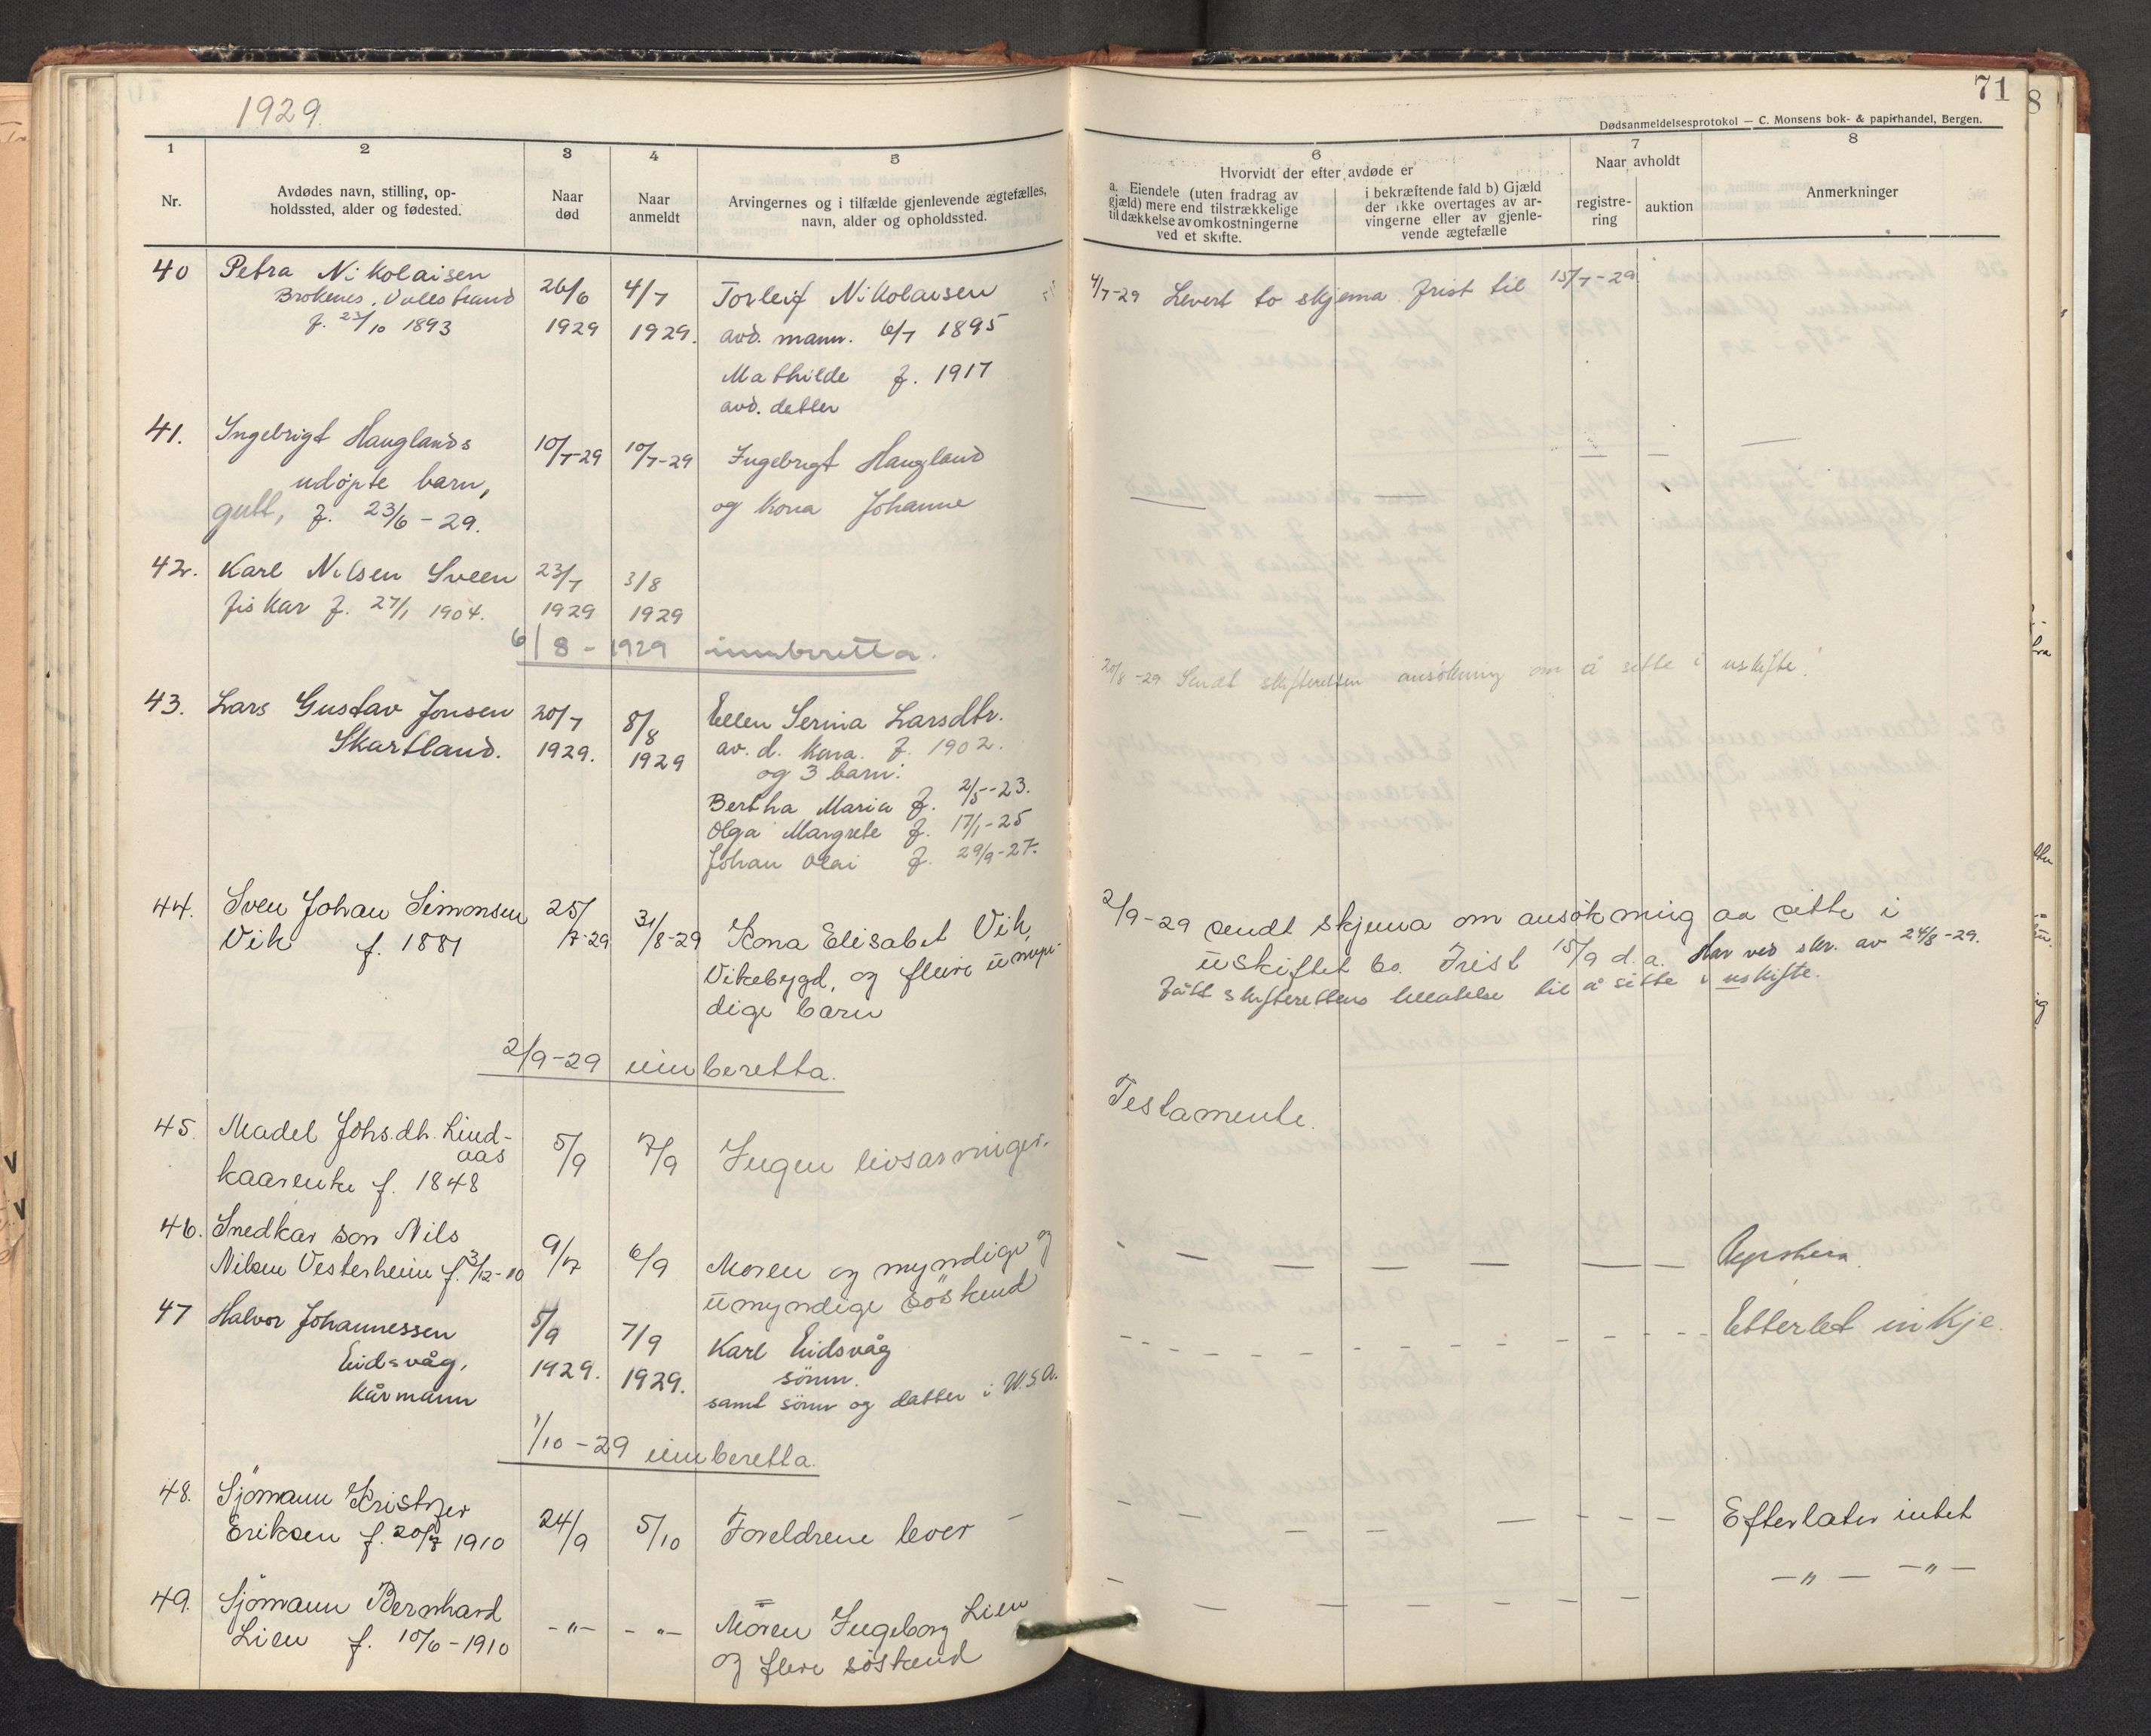 1929.
71
Dødsanmeldelsesprotokol — C. Monsens bok- & papirhandel, Bergen.
1
2
3
4
5
6
7
8
Nr.
Avdødes navn, stilling, op-
holdssted, alder og fødested.
Naar
død
Naar
anmeldt
Arvingernes og i tilfælde gjenlevende ægtefælles,
navn, alder og opholdssted.
Hvorvidt der efter avdøde er
a. Eiendele (uten fradrag av
gjæld) mere end tilstrækkelige
til dækkelse av omkostningerne
ved et skifte.
i bekræftende fald b) Gjæld
der ikke overtages av ar-
vingerne eller av gjenle-
vende ægtefælle
Naar avholdt
registre-
ring
auktion
Anmerkninger
40 Petra Nikolaisen 26/6 4/7 Torleif Nikolaisen 4/7-29 Levert to skjema. Frist til 15/7-29.
f. 23/10 1893 1929 1929. avd. mann. 6/7 1895
Mathilde f. 1917
avd. datter
41. Ingebrigt Hauglands 10/7-29 10/7-29 Ingebrigt Haugland
udøpte barn, og kona Johanne
gutt, f. 23/6-29.
42. Karl Nilsen Sveen 23/7 3/8
fiskar f. 27/1 1904. 1929 1929
6/8-1929 innberetta.
20/8-29 Sendt skifteretten ansökning om å sitte i uskifte.
43. Lars Gustav Jonsen 20/7 8/8 Ellen Serina Larsdtr.
Skartland. 1929. 1929 av. d. kona. f. 1902.
og 3 barn:
Bertha Maria f. 2/5-23.
Olga Margrete f. 17/1-25
Johan Olai f. 29/9-27.
44. Sven Johan Simonsen 25/7-29 31/8-29 Kona Elisabet Vik, 2/9-29 sendt skjema om ansøkning aa sitte i
Vik f. 1881 Vikebygd, og fleire umyn- uskiftet bo. Frist 15/9 d.a. Har ved skr. av 24/8-29.
dige barn fått skifterettens tillatelse til å sitte i uskifte.
2/9-29 innberetta.
45. Madel Johs.dtr. Lind- 5/9 7/9 Ingen livsarvinger. Testamente.
aas
kaarenke f. 1848
46. Snedkar son Nils 9/7 6/9 Moren og myndige og
Nilsen Vesterheim f. 3/12-10 umyndige søskend
47 Halvor Johannessen 5/9 7/9 Karl Eidsvåg Etterlet inkje.
Eidsvåg, 1929. 1929. sönn.
Kårmann samt sönn og datter i U.S.A.
1/10-29 innberetta.
48. Sjömann Kristoffer 24/9 5/10 Foreldrene lever Efterlater intet
Eriksen f. 1910
49. Sjömann Bernhard -"- -"- Moren Ingeborg Lien -"- -"-
Lien f. 10/6-1910 og flere søskend